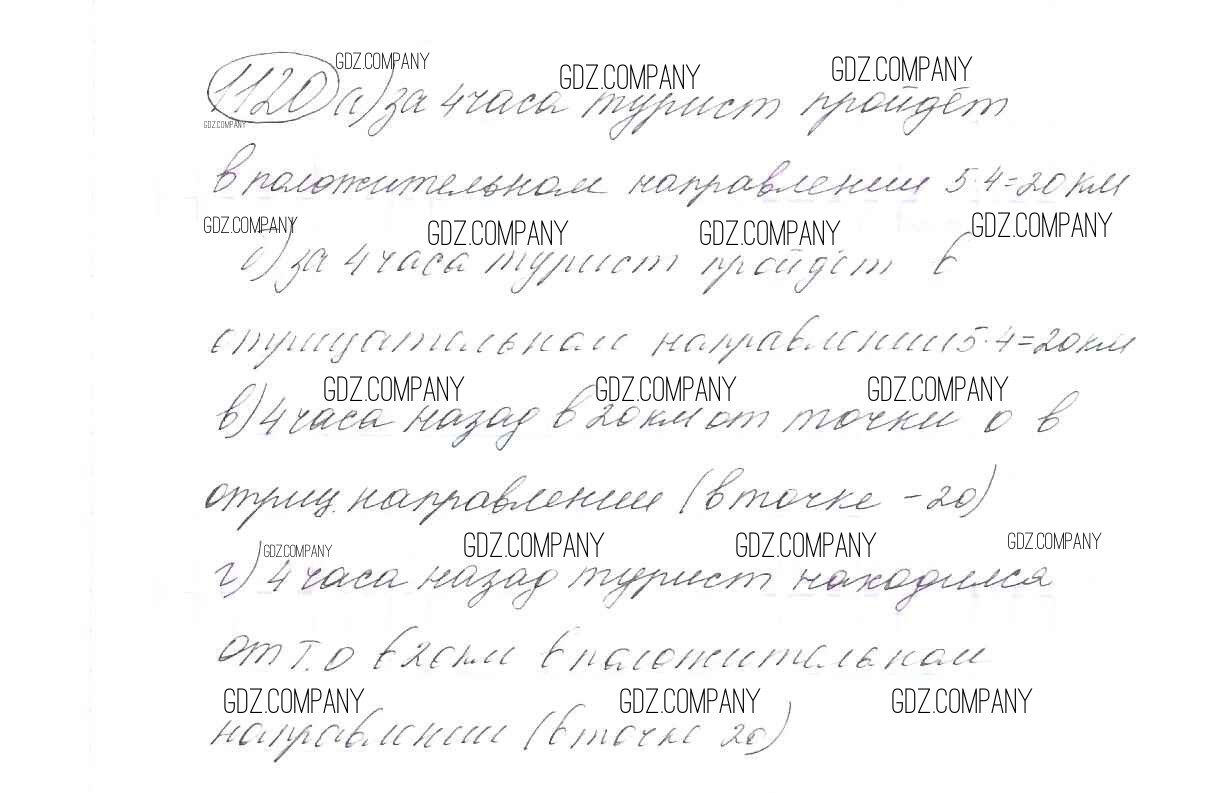 1120 а) за 4 часа турист пройдёт
в положительном направлении 5·4=20км
б) за 4 часа турист пройдёт в
отрицательном направлении 5·4=20км
в) 4 часа назад в 20 км от точки о в
отриц. направлении (в точке -20)
г) 4 часа назад турист находился
от т.о в 20км в положительном
направлении (в точке 20)
GDZ.COMPANY GDZ.COMPANY GDZ.COMPANY
GDZ.COMPANY
GDZ.COMPANY GDZ.COMPANY GDZ.COMPANY GDZ.COMPANY
GDZ.COMPANY GDZ.COMPANY GDZ.COMPANY
GDZ.COMPANY GDZ.COMPANY GDZ.COMPANY GDZ.COMPANY
GDZ.COMPANY GDZ.COMPANY GDZ.COMPANY